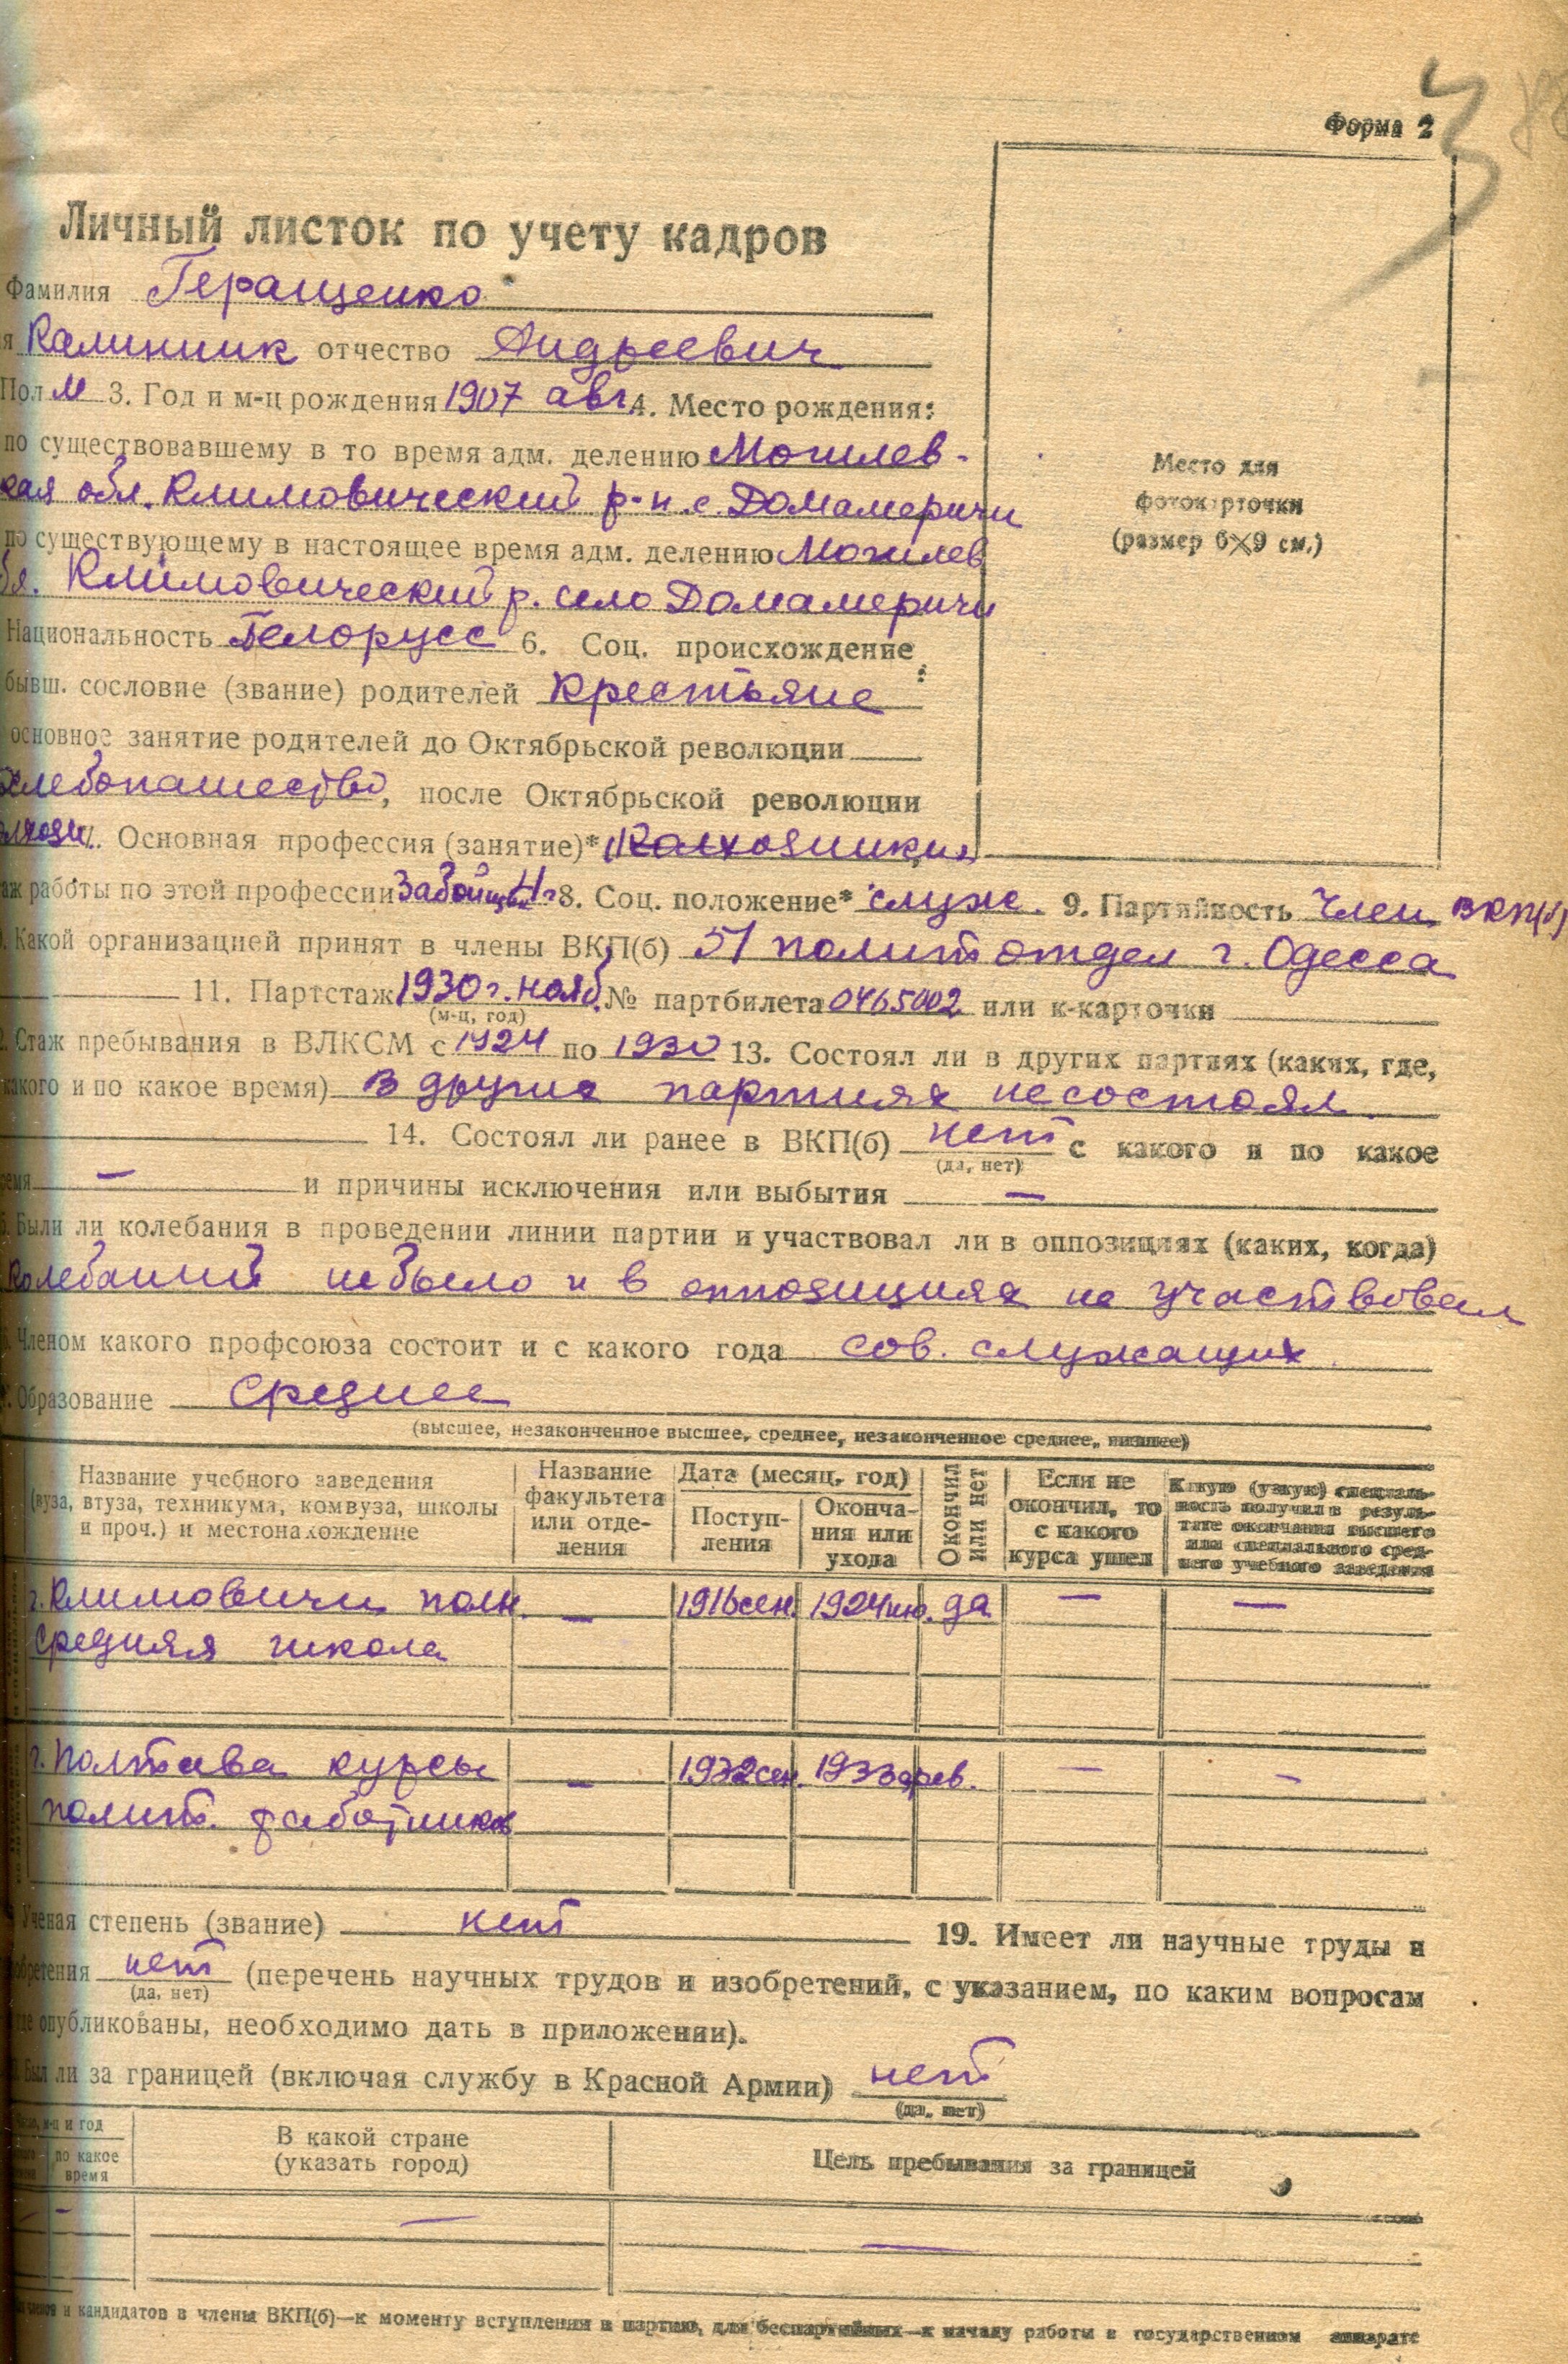 Форма 2
3
Личный листок по учету кадров
Фамилия Геращенко
я Калинник отчество Андреевич
Пол М 3. Год и м-ц рождения 1907 авг 4. Место рождения:
по существовавшему в то время адм. делению Могилев-
кая обл. Климовический р-н. с. Домамеричи
по существующему в настоящее время адм. делению Могилев
бл. Климовический р. село Домамеричи
Национальность Белорусс 6. Соц. происхождение:
бывш. сословие (звание) родителей Крестьяне
основное занятие родителей до Октябрьской революции
хлебопашество, после Октябрьской революции
Основная профессия (занятие)* Колхозники
аж работы по этой профессии Забойщик 8. Соц. положение* служ. 9. Партийность член ВКП(б)
Какой организацией принят в члены ВКП(б) 51 политотдел г. Одесса
11. Партстаж 1930 г. нояб. № партбилета 0465002 или к-карточки
(м-ц, год)
2. Стаж пребывания в ВЛКСМ с 1924 по 1930 13. Состоял ли в других партиях (каких, где,
какого и по какое время) В других партиях несостоял.
14. Состоял ли ранее в ВКП(б) нет с какого и по какое
(да, нет)
ремя — и причины исключения или выбытия —
Были ли колебания в проведении линии партии и участвовал ли в оппозициях (каких, когда)
Колебаний небыло и в оппозициях не участвовал
Членом какого профсоюза состоит и с какого года сов. служащих.
Образование среднее
(высшее, незаконченное высшее, среднее, незаконченное среднее, низшее)
Название учебного заведения
(вуза, втуза, техникума, комвуза, школы
и проч.) и местонахождение
Название
факультета
или отде-
ления
Дата (месяц, год)
Поступ-
ления
Оконча-
ния или
ухода
Окончил
или нет
Если не
окончил, то
с какого
курса ушел
Какую (узкую) специаль-
ность получил в резуль-
тате окончания высшего
или специального сред-
него учебного заведения
г. Климовичи полн. — 1916 сен. 1924 ию. да — —
средняя школа
г. Полтава курсы — 1932 сен. 1933 фев. — —
полит. работников
Ученая степень (звание) нет 19. Имеет ли научные труды и
обретения нет (перечень научных трудов и изобретений, с указанием, по каким вопросам
(да, нет)
де опубликованы, необходимо дать в приложении).
Был ли за границей (включая службу в Красной Армии) нет
(да, нет)
м-ц и год
по какое
время
В какой стране
(указать город)
Цель пребывания за границей
— — — —
членов и кандидатов в члены ВКП(б)—к моменту вступления в партию, для беспартийных—к началу работы в государственном аппарате
Место для
фотокарточки
(размер 6×9 см.)